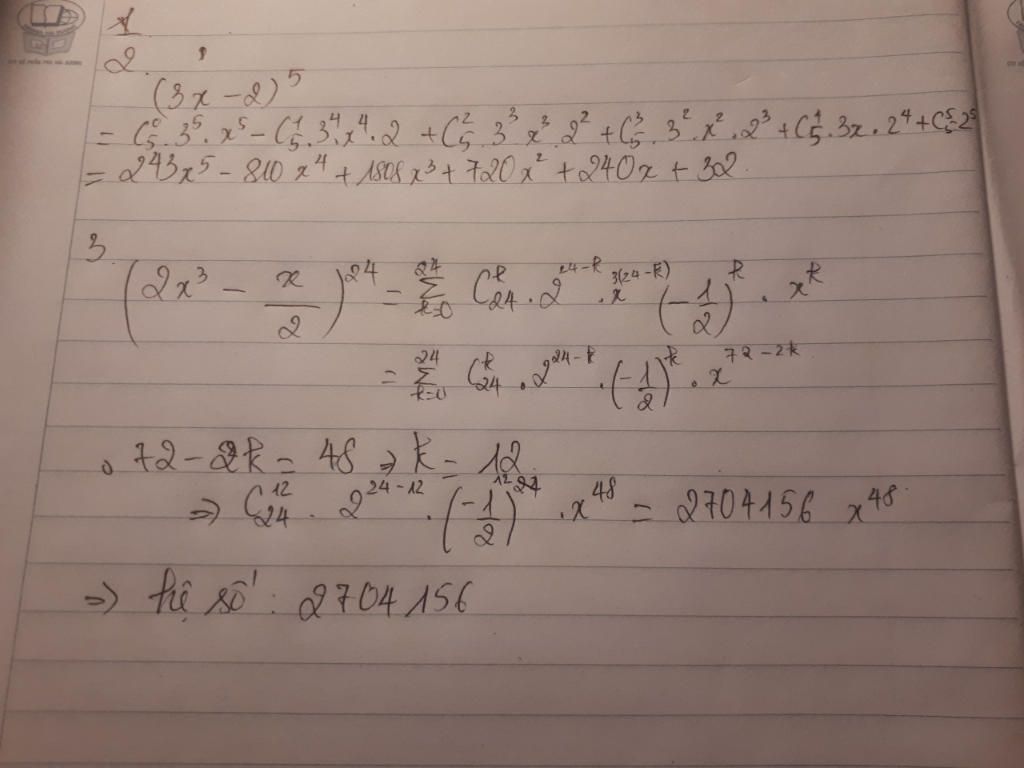 1
2.
(3x - 2)^5
= C_5^0 . 3^5 . x^5 - C_5^1 . 3^4 . x^4 . 2 + C_5^2 . 3^3 x^3 . 2^2 + C_5^3 . 3^2 . x^2 . 2^3 + C_5^1 . 3x . 2^4 + C_5^5 2^5
= 243x^5 - 810x^4 + 1808x^3 + 720x^2 + 240x + 32
3.
(2x^3 - x/2)^24 = Σ_{k=0}^{24} C_24^k . 2^{24-k} . x^{3(24-k)} (-1/2)^k . x^k
= Σ_{k=0}^{24} C_24^k . 2^{24-k} . (-1/2)^k . x^{72-2k}
72 - 2k = 48 ⇒ k = 12
⇒ C_24^12 . 2^{24-12} . (-1/2)^12 . x^48 = 2704156 x^48
⇒ hệ số : 2704156